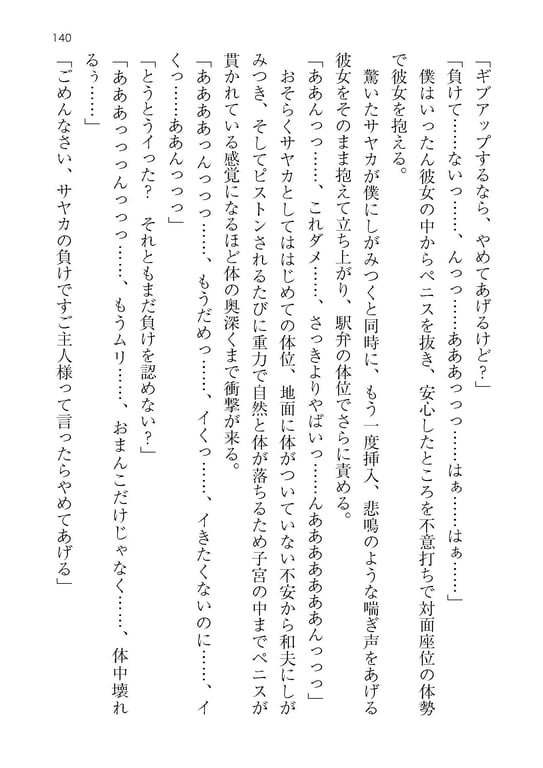 140
「ギブアップするなら、やめてあげるけど?」
「負けて……ないっ……、んっっ……あああっっっ……はぁ……はぁ……」
　僕はいったん彼女の中からペニスを抜き、安心したところを不意打ちで対面座位の体勢
で彼女を抱える。
　驚いたサヤカが僕にしがみつくと同時に、もう一度挿入、悲鳴のような喘ぎ声をあげる
彼女をそのまま抱えて立ち上がり、駅弁の体位でさらに責める。
「ああんっっ……、これダメ……、さっきよりやばいっ……んああああああんっっっ」
　おそらくサヤカとしてははじめての体位、地面に体がついていない不安から和夫にしが
みつき、そしてピストンされるたびに重力で自然と体が落ちるため子宮の中までペニスが
貫かれている感覚になるほど体の奥深くまで衝撃が来る。
「ああああっんっっっ……、もうだめっ……、イくっ……、イきたくないのに……、イ
くっ……ああんっっっ」
「とうとうイった?　それともまだ負けを認めない?」
「あああっっっんっっっ……、もうムリ……、おまんこだけじゃなく……、体中壊れ
るぅ……」
「ごめんなさい、サヤカの負けですご主人様って言ったらやめてあげる」